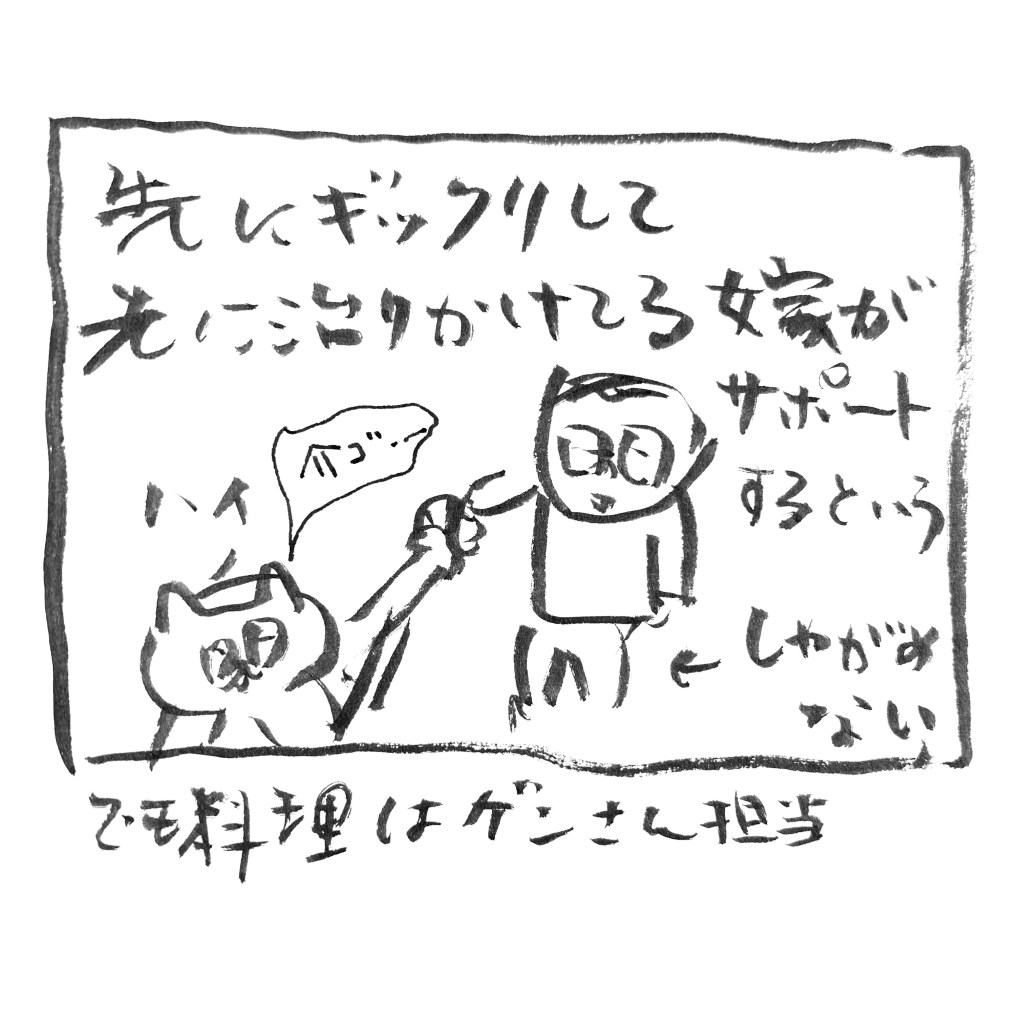 先にギックリして
先に治りかけてる嫁が
サポート
するという
ハイ
しゃがめ
ない
でも料理はゲンさん担当